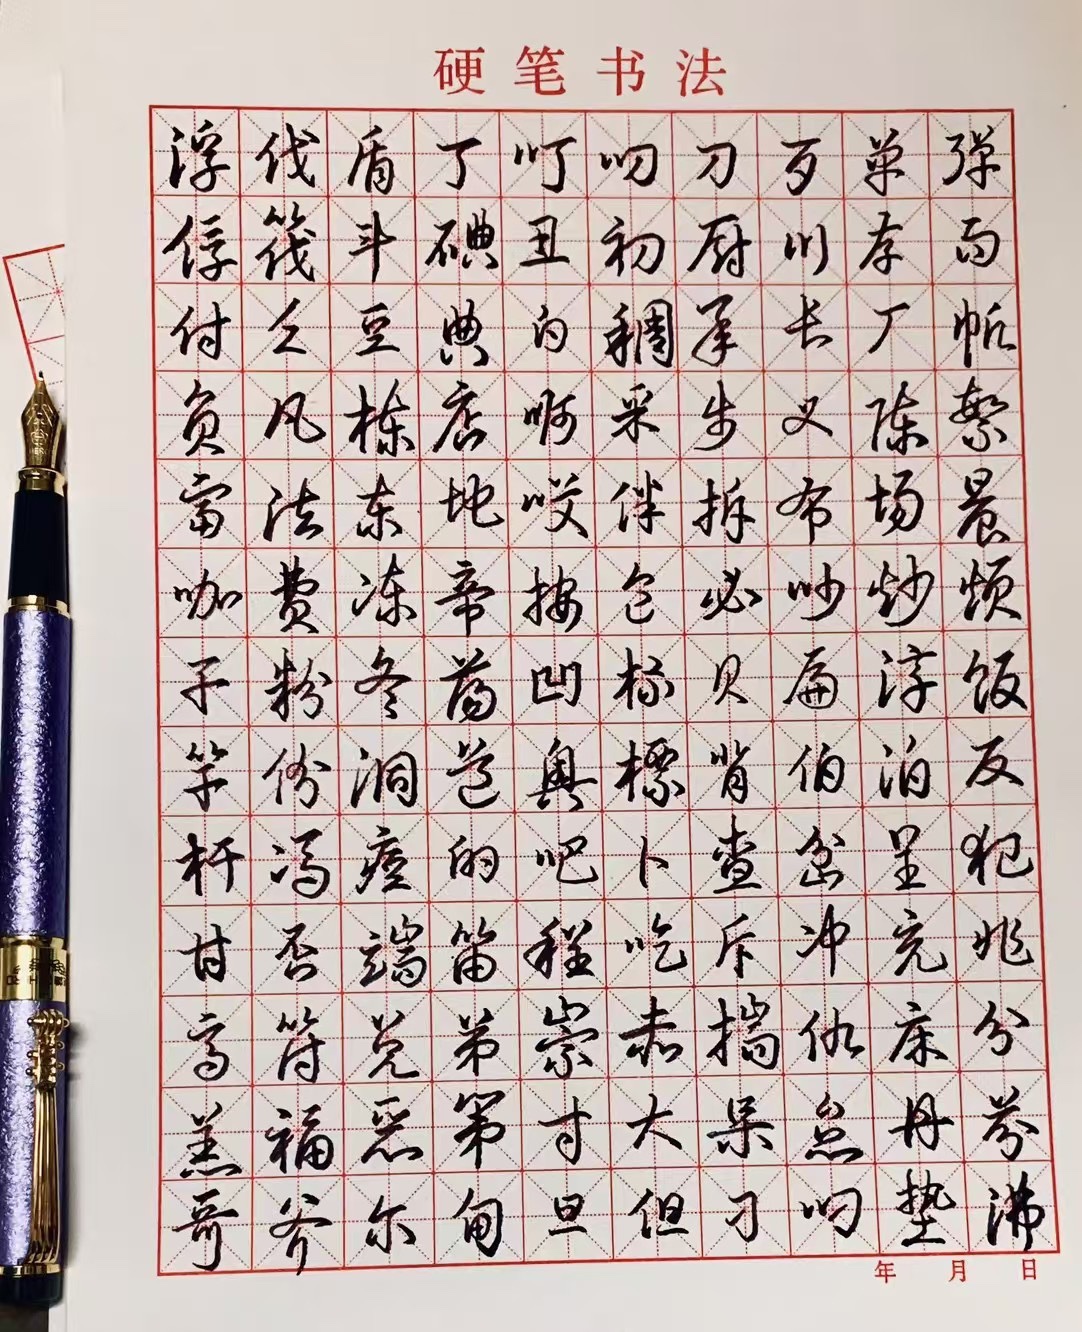 硬笔书法
浮伐盾丁叮叨刀歹单弹
俘筏斗碘丑初厨川存而
付欠豆典的稠承长厂帐
负凡栋店啊采步义陈繁
富法东地哎伴拆布场晨
咖费冻帝按包必吵炒烦
子粉冬荡凹标贝扁淳饭
竿份洞范奥标背伯泊反
杆冯痘的吧卜查岔呈犯
甘否端笛程吃斥冲充兆
高符兑弟崇赤揣仇床分
羔福恶第寸大呆怠丹芬
哥斧尔甸旦但刁叼垫沸
年 月 日